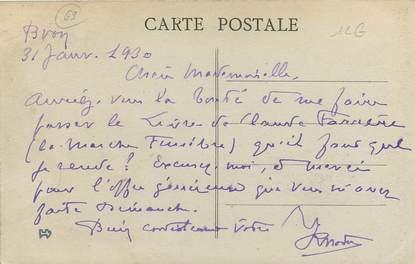 CARTE POSTALE
69
Bron
31 Janv. 1930
Chère Mademoiselle,
Auriez-vous la bonté de me faire
passer le Livre de Claude Farrère
(la Marche Funèbre) qu'il faut que
je rende? Excusez-moi, et merci
pour l'offre généreuse que vous m'avez
faite Dimanche.
Bien cordialement vôtre